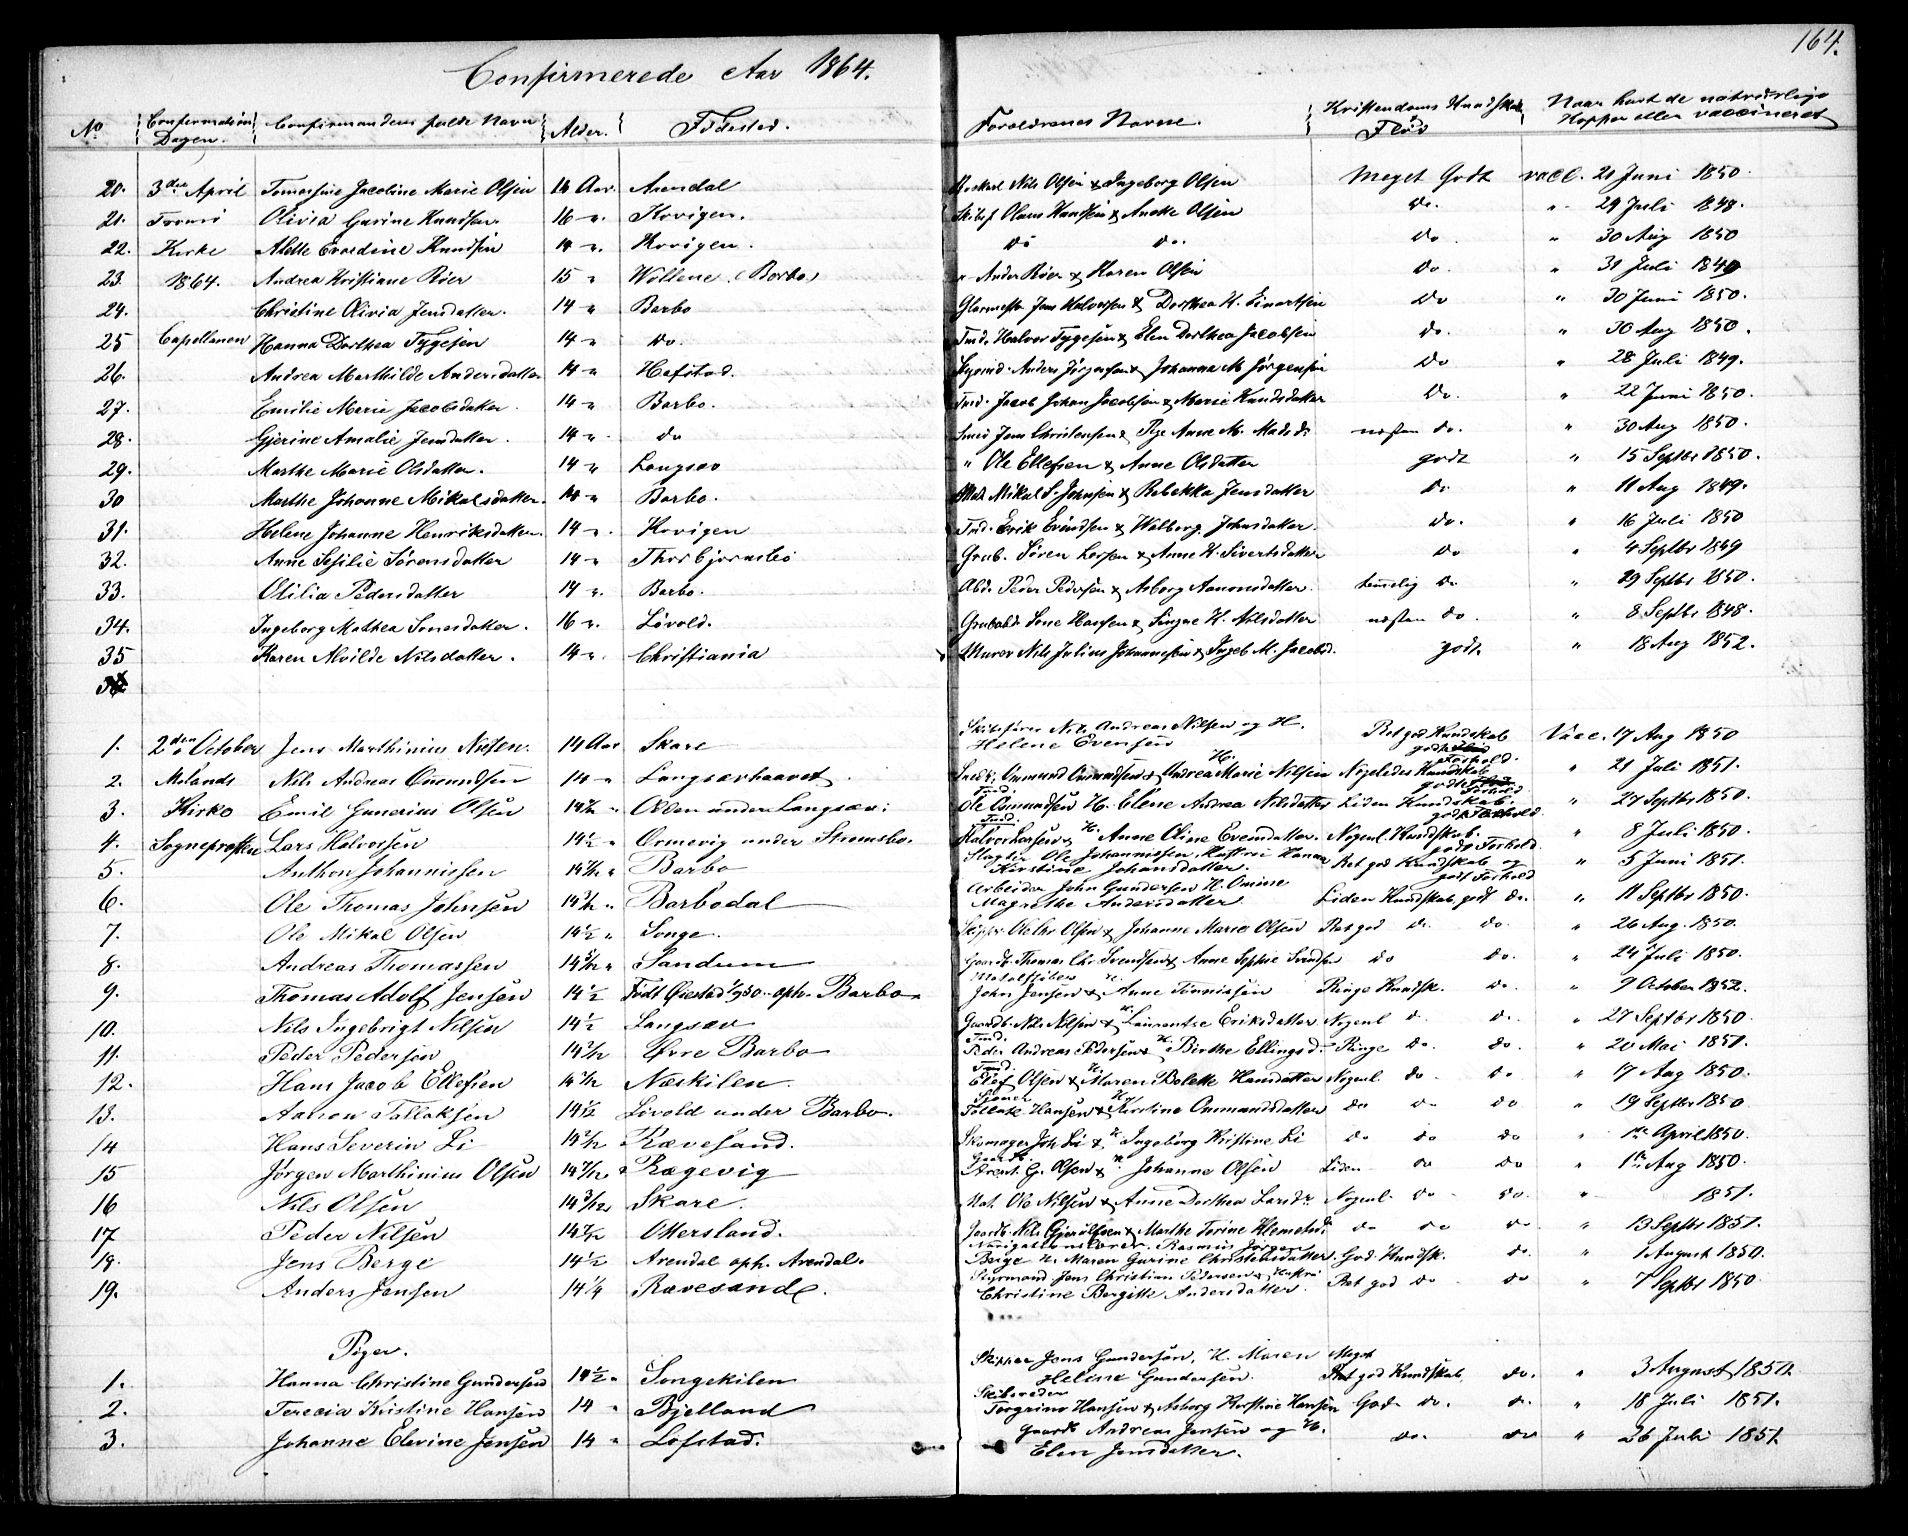 164.
Confirmerede Aar 1864.
No Confirmations Dagen. Confirmandens fulde Navn Alder. Fødested. Forældrenes Navne. Kristendoms Kundskab Flid Naar havt de naturlige Kopper eller vaccineret
20. 3die April Tomassine Jacoline Marie Olsen 14 Aar. Arendal Nils Olsen & Ingeborg Olsen Meget Godt vacc. 21 Juni 1850.
21. Tromø Olivia Gurine Knudsen. 16 " Kovigen. Olaus Knudsen & Aneke Olsen do. " 29 Juli 1848.
22. Kirke Alette Evardine Knudsen 14 " Kovigen. do do. do. " 30 Aug 1850
23. 1864. Andrea Kristiane Röer 15 " Wollene (Barbo) " Anders Röer & Karen Olsen do. " 31 Juli 1849
24. Christine Olivia Jensdatter. 14 " Barbo Glarmestr Jens Halvorsen & Dorthea H. Einartsen do " 30 Juni 1850.
25 Capellanen Hanna Dorthea Tygesen 14 " do. Tmd. Halvor Tygesen & Elen Dorthea Jacobsen do. " 30 Aug 1850.
26. Andrea Marthilde Andersdatter 14 " Hafstad. Anders Jörgensen & Johanna M. Jörgensen do " 28 Juli 1849.
27. Emilie Marie Jacobsdatter. 14 " Barbo. Tmd. Jacob Johan Jacobsen & Marie Knudsdatter do. " 22 Juni 1850.
28. Gjerine Amalie Jensdatter. 14 " do Smed Jens Christensen & Anne M. Madsd: næsten do. " 30 Aug 1850.
29. Marthe Marie Olsdatter. 14 " Langsæv " Ole Ellefsen & Anne Olsdatter godt " 15 Septbr 1850.
30 Marthe Johanne Mikalsdatter. 14 " Barbo. Mat. Mikal S. Johnsen & Rebekka Jensdatter do " 11 Aug 1849.
31. Helene Johanne Henriksdatter. 14 " Kovigen Tmd. Erik Evendsen & Walborg Johnsdatter. do. " 16 Juli 1850
32. Anne Sesilie Sörensdatter 14 " Thorbjörnsbö Grub. Sören Larsen & Anne K. Sivertsdatter do " 4 Septbr 1849
33. Otilia Pedersdatter 14 " Barbo. Abd. Peder Pedersen & Asborg Aanonsdatter. temelig do " 29 Septbr 1850.
34. Ingeborg Mathea Sonesdatter. 16 " Lövold. Sone Hansen & Signe H. Nilsdatter næsten do. " 8 Septbr 1848.
35 Karen Alvilde Nilsdatter. 14 " Christiania Murer Nils Julius Johannesen & Ingeb M. Jacobsd. godt " 18 Aug 1852.
1. 2den October Jens Marthinius Nielsen. 14 Aar Skare Skibsfører Nils Andreas Nilsen og H. Helene Evensen Ret god Kundskab godt Forhold. Vacc. 17 Aug 1850
2. Ølands Nils Andreas Omundsen 14 " Langsævhaavet Smed. Omund Omundsen & H. Andrea Marie Nilsen Nogeledes Kundskab godt Forhold " 21 Juli 1851.
3. Kirke Emil Gunerius Olsen 14 " Odden under Langsæv: Tmd. Ole Omundsen H. Elene Andrea Nilsdatter Liden Kundskab. godt Forhold " 27 Septbr 1850.
4. Sogneprosten Lars Halvorsen 14½ " Ormevig under Strömsbo. Tmd. Halvor Larsen & H. Anne Oline Evensdatter. Nogenl. Kundskab. godt Forhold " 8 Juli 1850.
5. Anthon Johannissen " Barbo Slagter Ole Johannissen Hustru Hanne Kirstine Johansdatter. Ret god Kundskab og godt Forhold " 5 Juni 1851.
6. Ole Thomas Johnsen " Barbodal Arbeider John Gundersen H. Omine Magrethe Andersdatter Liden Kundskab, godt do. " 11 Septbr 1850.
7. Ole Mikal Olsen 14½ " Songe. Skipper Ole Chr Olsen & Johanne Marie Olsen Ret god do. do. " 26 Aug. 1850.
8. Andreas Thomassen " Sandum Gaardb. Thomas Chr. Svendsen & Anne Sophie Svendsen do do. " 24 Juli 1850.
9. Thomas Adolf Jensen 14½ Födt Öiestad oph. Barbo. John Jensen & Anne Tönnissen Ringe Kundsk. do. " 9 October 1852.
10. Nils Ingebrigt Nilsen 14½ Langsæv Gaardb. Nils Nilsen & H. Laurentse Eriksdatter Nogenl do. do. " 27 Septbr 1850.
11. Peder Pedersen Övre Barbo Tmd. Peder Andreas Pedersen & H. Birthe Ellingsd: Ringe do. do. " 20 Mai 1851.
12. Hans Jacob Ellefsen Næskilen. Tmd. Elef Olsen & H. Maren Bolette Hansdatter Nogenl. do. do. " 17 Aug 1850.
13. Aanon Tallaksen 14½ Lövold under Barbo. Tallak Hansen & Kirstine Ommundsdatter do do do " 19 Septbr 1850
14 Hans Severin Li Rævesand. Skomager Joh Li & H. Ingeborg Kristine Li do do do " 1ste April 1850.
15 Jørgen Marthinius Olsen " Rægevig Gaardb. Arent. G. Olsen & H. Johanne Olsen Liden do do " 1ste Aug 1850.
16 Nils Olsen Skare. Mat. Ole Nilsen & Anne Dorthea Larsdr Nogenl. do do. " 1851.
17 Peder Nilsen Ottersland. Gaardb. Nils Gjerulfsen & Marthe Torine Klemetsd: do do do " 13 Septbr 1851.
18. Jens Berge 14½ Arendal oph. Arendal. Navigationslærer Rasmus Berge H. Maren Gurine Christensdatter. God. Kundsk. do. " 1 August 1850.
19. Anders Jensen 14¼ Rævesand. Styrmand Jens Christian Pedersen & Hustru Christine Bergitte Andersdatter. Ret god do do " 7 Septbr 1850
Piger.
1. Hanna Christine Gundersen 14½ " Songekilen Skipper Jens Gundersen, H. Maren Helene Gundersen. Meget god Kundskab, do. " 3 August 1850.
2. Terecia Kristine Hansen 14 " Bjelland Skibsreder Torgrim Hansen & Asborg Kirstine Hansen God do. do. " 18 Juli 1851.
3. Johanne Elevine Jensen 14 " Lofstad. Gaardb Andreas Jensen og H. Elen Jensdatter. do. do " 26 Juli 1851.